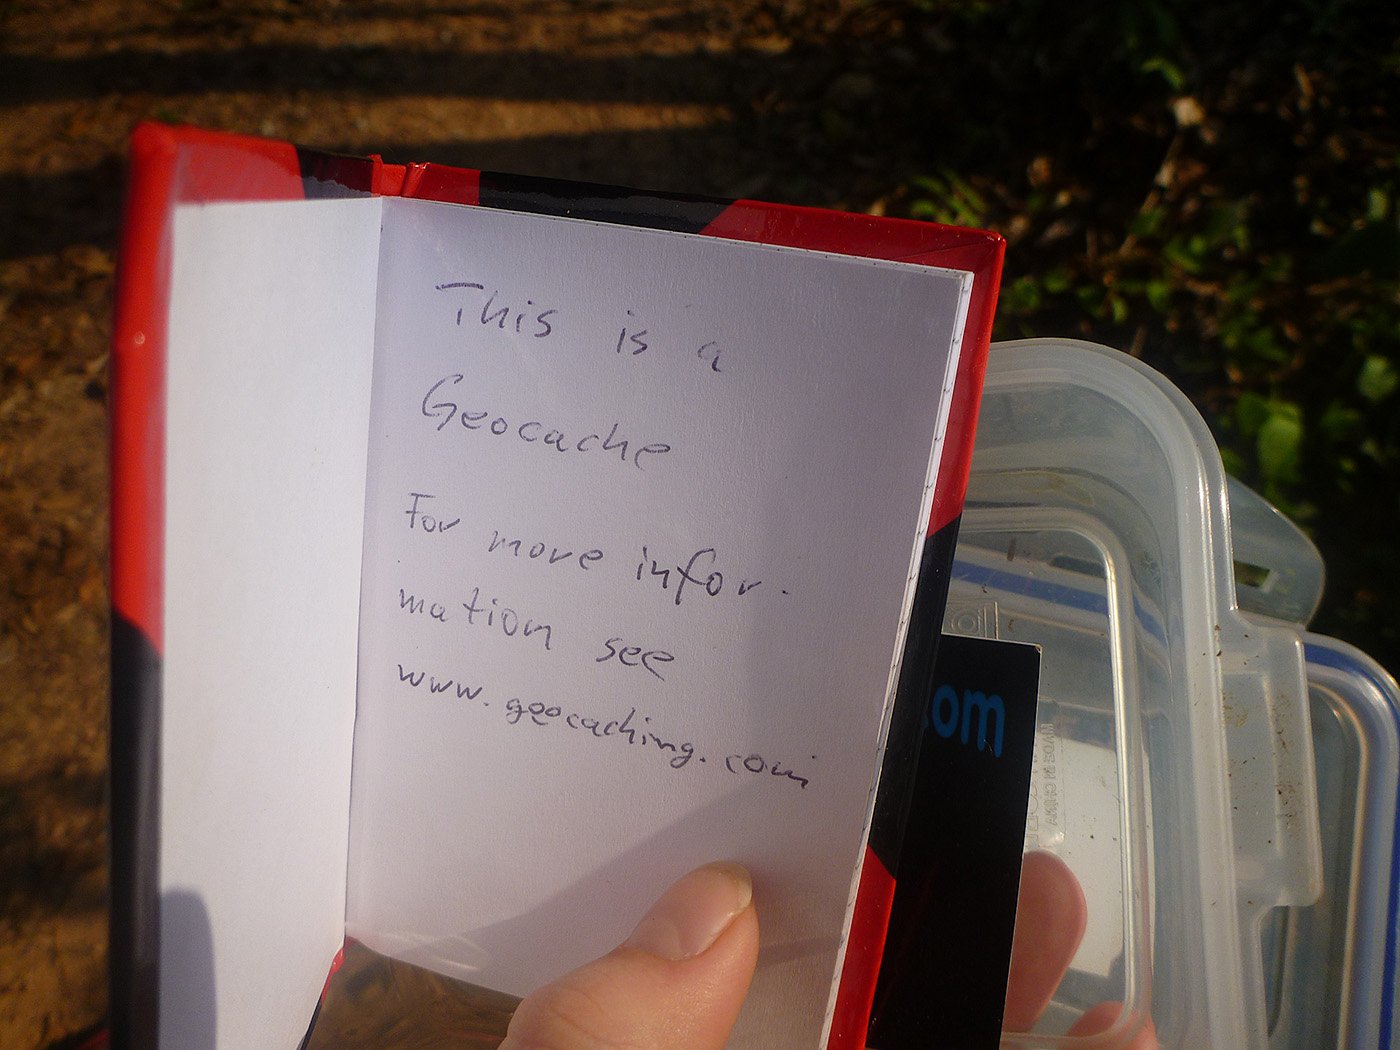 This is a
Geocache
For more infor-
mation see
www.geocaching.com
com
MADE IN CHINA